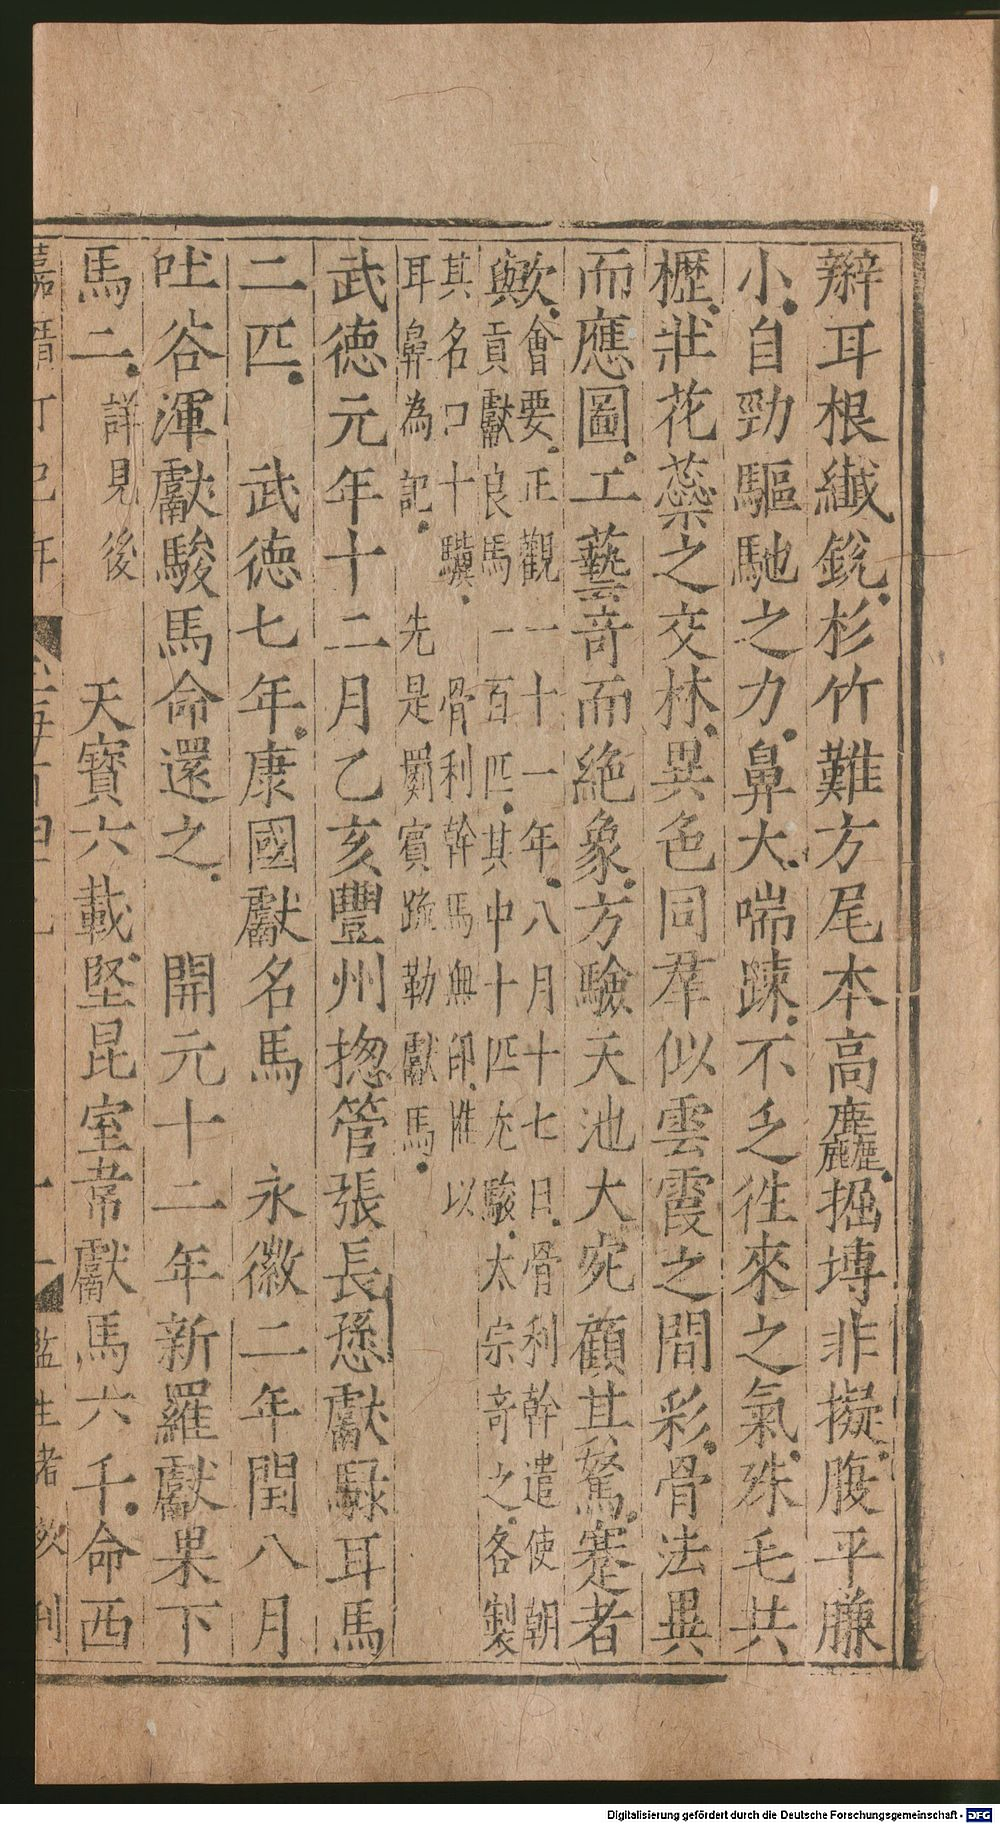 辮耳根纖銳杉竹難方尾本高麤掘塼非擬腹平臁
小自勁驅馳之力鼻大喘踈不乏徃來之氣殊毛共
櫪狀花蘂之交林異色同羣似雲霞之間彩骨法異
而應圖工藝竒而絶象方驗天池大宛顧其駑蹇者
歟會要正觀一十一年八月十七日骨利幹遣使朝
與貢獻良馬一百匹其中十匹尤駿太宗竒之各製
其名曰十驥 骨利幹馬無印惟以
耳鼻為記 先是罽賓䟽勒獻馬
武徳元年十二月乙亥豐州揔管張長愻獻騄耳馬
二匹 武徳七年康國獻名馬 永徽二年閏八月
吐谷渾獻駿馬命還之 開元十二年新羅獻果下
馬二詳見後 天寶六載堅昆室韋獻馬六千命西
嘉靖丁巳年 玉海百四九 十一 監生者 刊
Digitalisierung gefördert durch die Deutsche Forschungsgemeinschaft - DFG